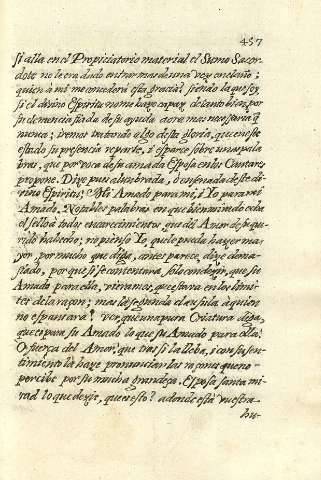 457
si alla en el Propiciatorio material el Sumo Sacer-
dote no le era dado entrar mas de una vez en el año;
quien à mi me concederà esta gracia? siendo la que soy
si el divino Espiritu no me haze capaz de tanto bien, por
su clemencia fiada de su ayuda aora mas necesaria q̃
nunca; iremos tratando algo desta gloria, que en este
estado su presencia reparte, i esparce sobre unas pala
bras, que por voca de su amada Esposa en los Cantares
propone. Dize pues alumbrada, i enseñada deste di-
vino Espiritu, Mi Amado para mi, i Yo para mi
Amado. Notables palabras en que bien mirado echa
el sello à todos encarecimientos que del Amor de su que
rido ha hecho; no pienso Yo que le pueda hazer ma-
yor, por mucho que diga, antes parece dize dema-
siado, porque si se contentara solo con dezir, que su
Amado para ella, vieramos, que estava en los limi-
tes de la razon; mas la segunda clausula à quien
no espantara? ver que una pura Criatura diga,
que es para su Amado lo que su Amado para ella?
O fuerça del Amor! que tras si la lleba, i con su sen-
timiento la haze pronunciar las raçones que no
percibe por su mucha grandeza. Esposa santa mi-
rad lo que dezis, que es esto? adonde està vuestra
hu-